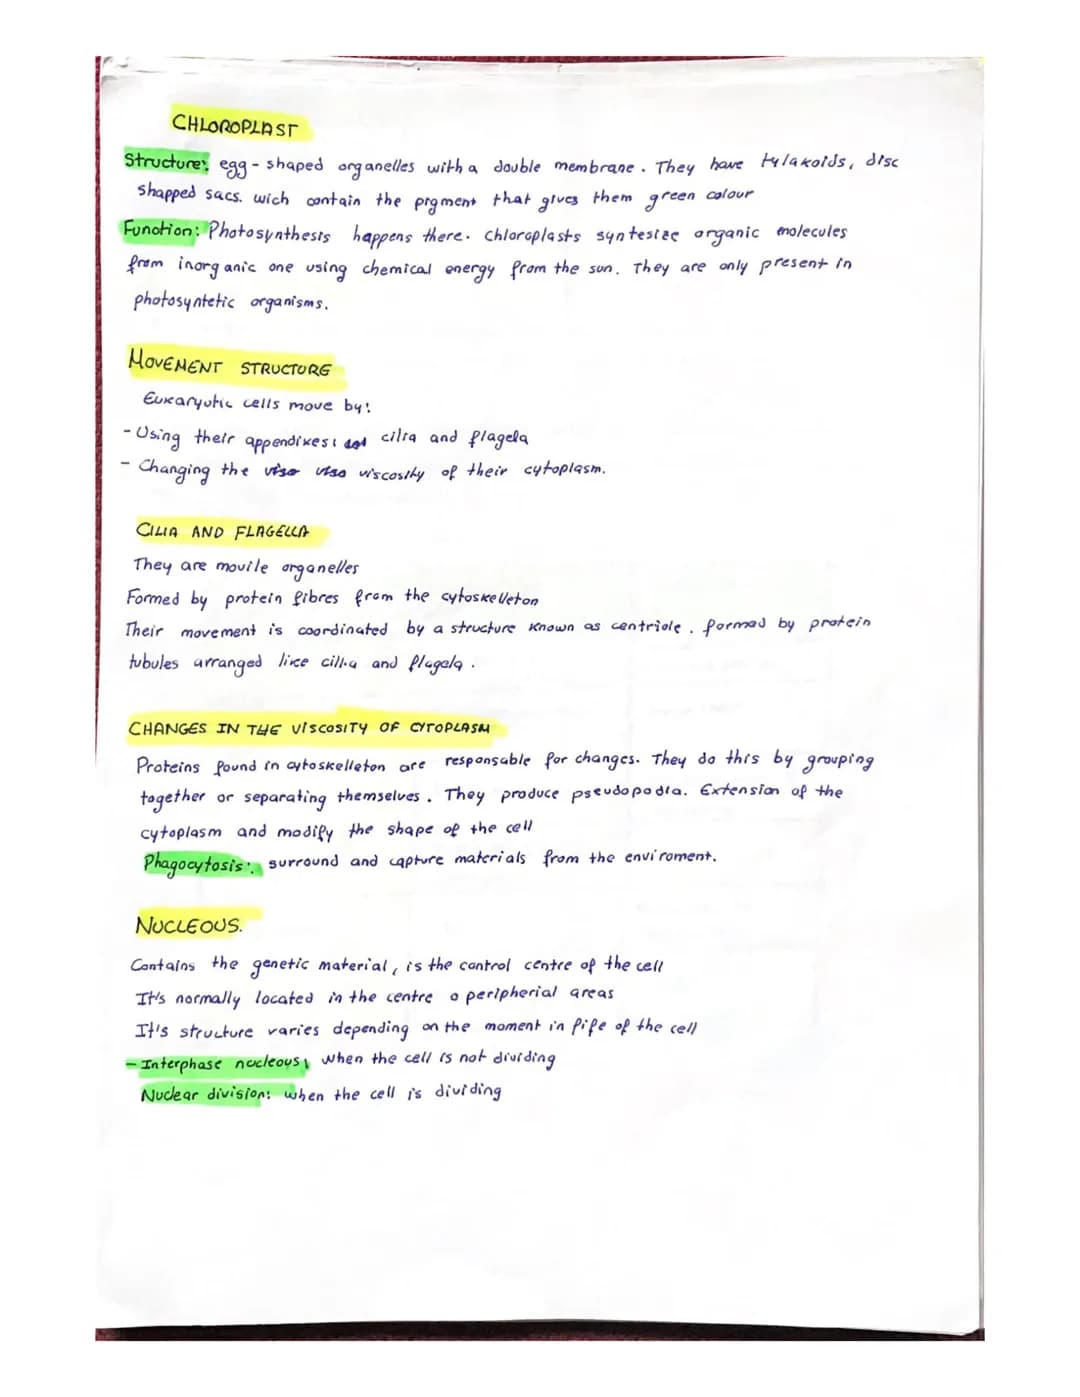 CHLOROPLAST
Structure: egg-shaped organelles with a double membrane. They have tylakoids, disc
shapped sacs. wich contain the pigment that gives them green colour
Function: Photosynthesis happens there. Chloroplasts syntesize organic molecules
from inorganic one using chemical energy from the sun. They are only present in
photosyntetic organisms.
MOVEMENT STRUCTURE
Eukaryotic cells move by:
- Using their appendixes: cilia and flagela
- Changing the viscosity of their cytoplasm.
CILIA AND FLAGELLA
They are movile organelles
Formed by protein fibres from the cytoskelleton
Their movement is coordinated by a structure known as centriole. formed by protein
tubules arranged like cillia and flagela.
CHANGES IN THE VISCOSITY OF CYTOPLASM
Proteins found in cytoskelleton are responsable for changes. They do this by grouping
together or separating themselves. They produce pseudopodia. Extension of the
cytoplasm and modify the shape of the cell
Phagocytosis: surround and capture materials from the enviroment.
NUCLEOUS.
Contains the genetic material, is the control centre of the cell
It's normally located in the centre o peripherial areas
It's structure varies depending on the moment in fife of the cell
- Interphase nucleous: when the cell is not dividing
Nuclear division: when the cell is dividing